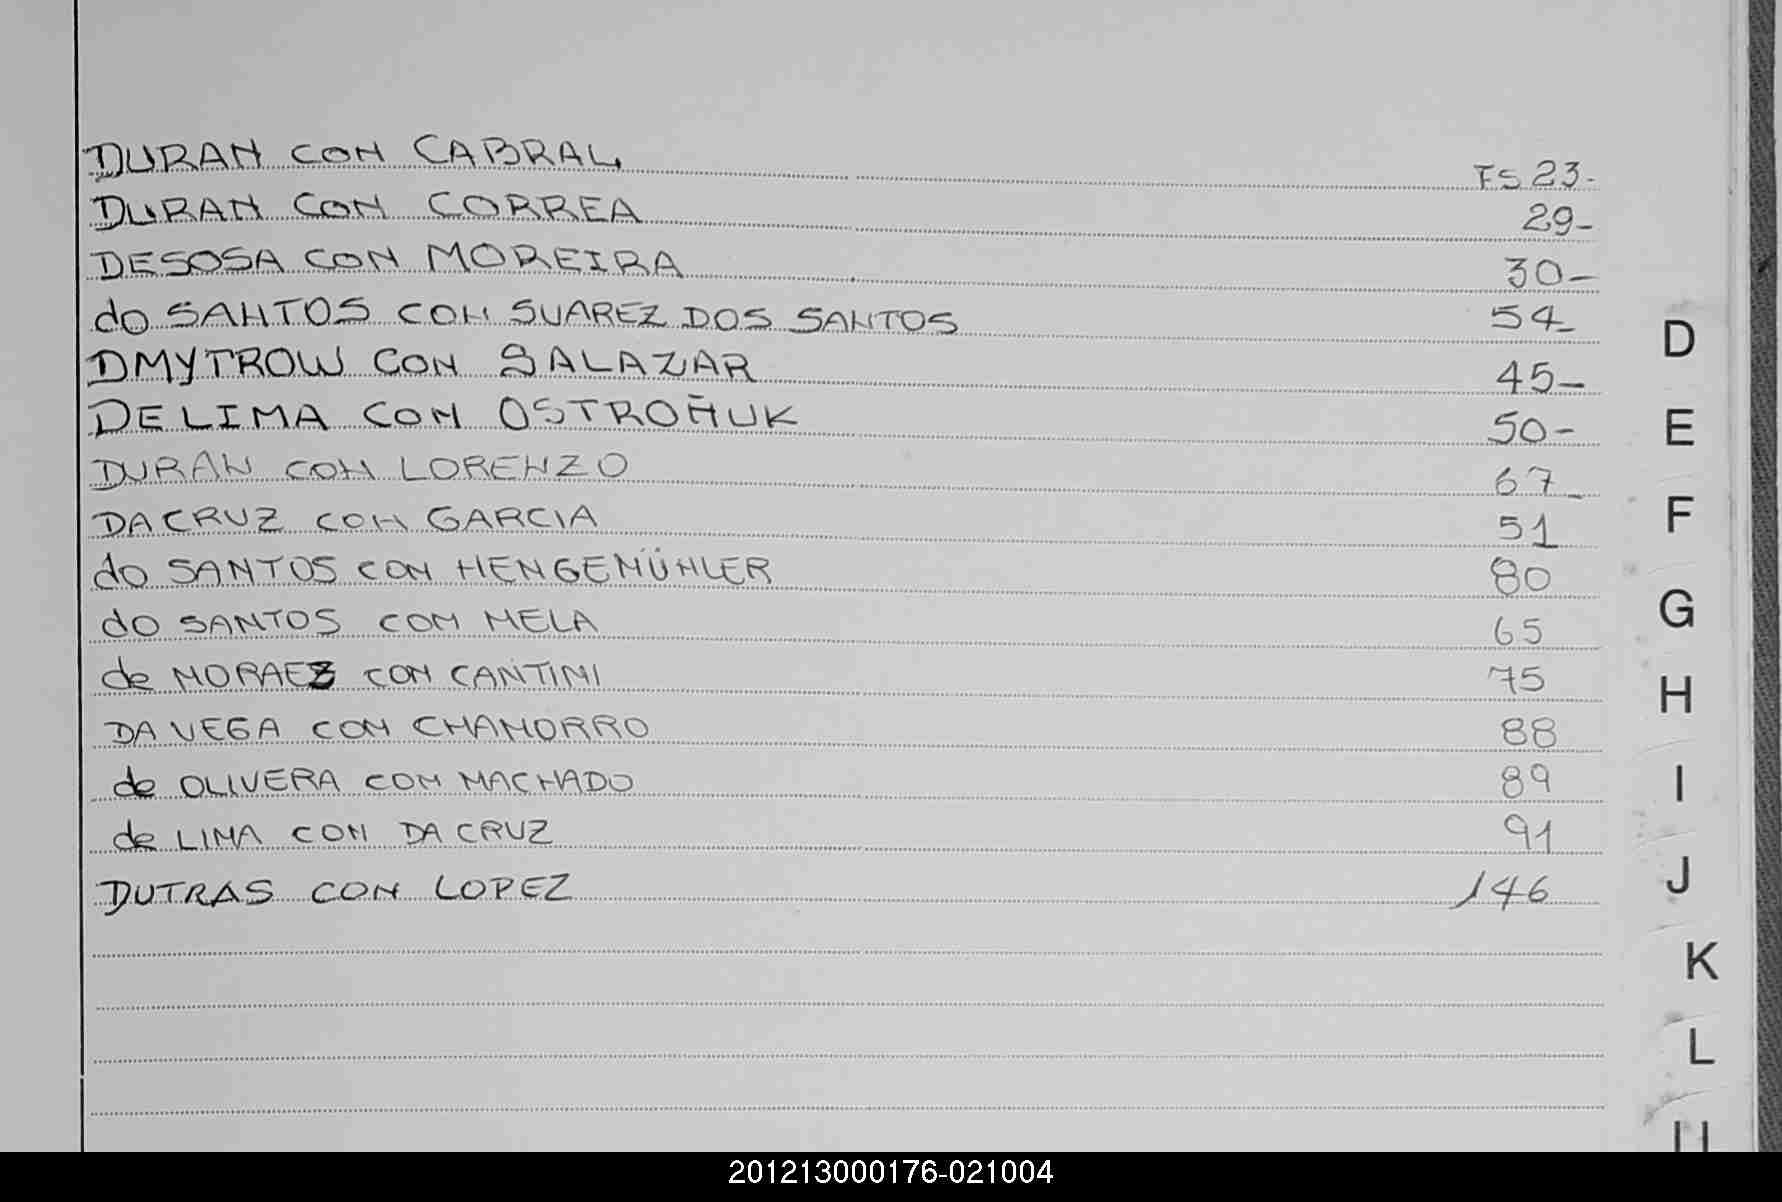 DURAN CON CABRAL FS 23-
DURAN CON CORREA 29-
DESOSA CON MOREIRA 30-
do SANTOS CON SUAREZ DOS SANTOS 54-
DMYTROW CON SALAZAR 45-
DELIMA CON OSTROÑUK 50-
DURAN CON LORENZO 67-
DACRUZ CON GARCIA 51
do SANTOS CON HENGEMÜHLER 80
do SANTOS CON MELA 65
de MORAES CON CANTINI 75
DA VEGA CON CHAMORRO 88
de OLIVERA CON MACHADO 89
de LIMA CON DA CRUZ 91
DUTRAS CON LOPEZ 146
D
E
F
G
H
I
J
K
L
201213000176-021004